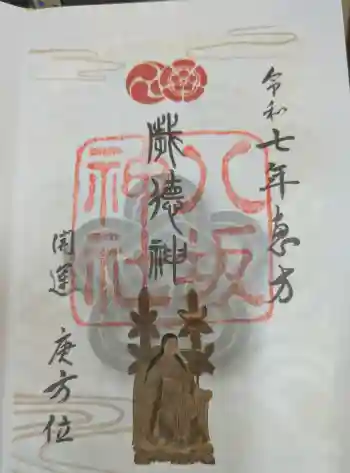 令和七年恵方
歳徳神
八坂神社
開運
庚方位